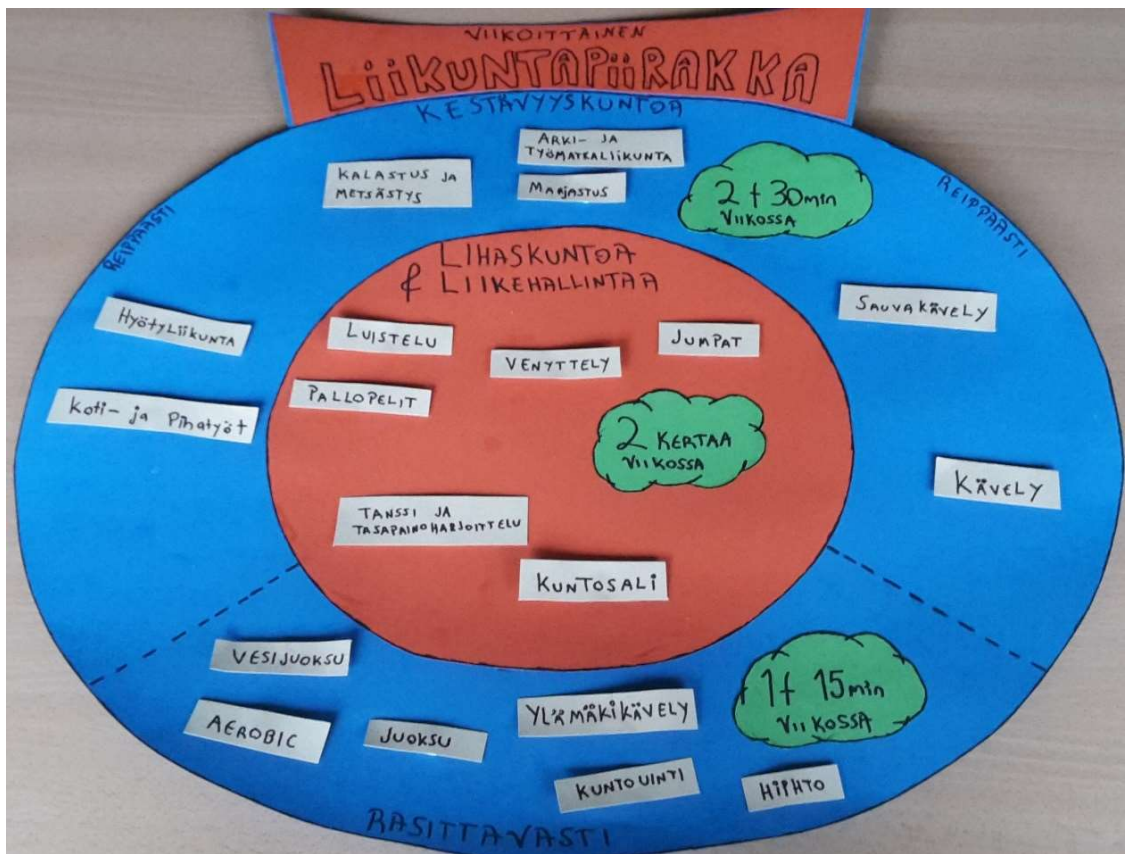 VIIKOITTAINEN
LiiKUNTAPiiRAKKA
KESTÄVYYSKUNTOA
REIPPAASTI
REIPPAASTI
KALASTUS JA
METSÄSTYS
ARKI- JA
TYÖMATKALIIKUNTA
MARJASTUS
2 t 30min
VIIKOSSA
HYÖTYLIIKUNTA
Koti- ja Pihatyöt
SAUVAKÄVELY
KÄVELY
LIHASKUNTOA
& LIIKEHALLINTAA
LUISTELU
VENYTTELY
JUMPAT
PALLOPELIT
2 KERTAA
VIIKOSSA
TANSSI JA
TASAPAINOHARJOITTELU
KUNTOSALI
VESIJUOKSU
AEROBIC
JUOKSU
YLÄMÄKIKÄVELY
1t 15min
VIIKOSSA
KUNTOUINTI
HIIHTO
RASITTAVASTI